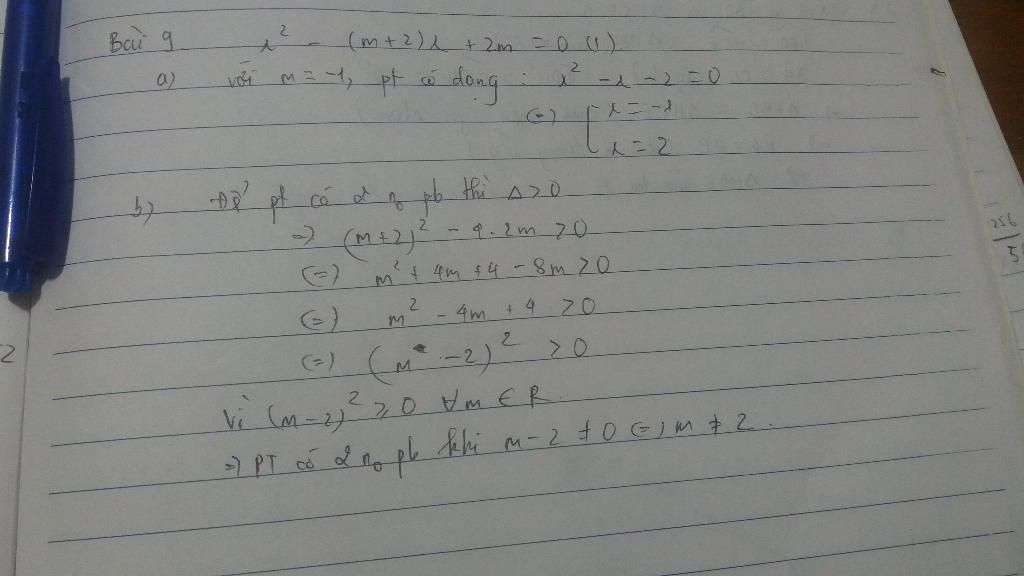 Bài 9 x² - (m+2)x + 2m = 0 (1)
a) với m = -1, pt có dạng : x² - x - 2 = 0
(=) [ x = -1
x = 2
b) Để pt có 2 n₀ pb thì Δ > 0
=> (m+2)² - 4.2m > 0
(=) m² + 4m + 4 - 8m > 0
(=) m² - 4m + 4 > 0
(=) (m - 2)² > 0
Vì (m-2)² ≥ 0 ∀m ∈ R.
=> PT có 2 n₀ pb khi m - 2 ≠ 0 (=) m ≠ 2.
2
256
5